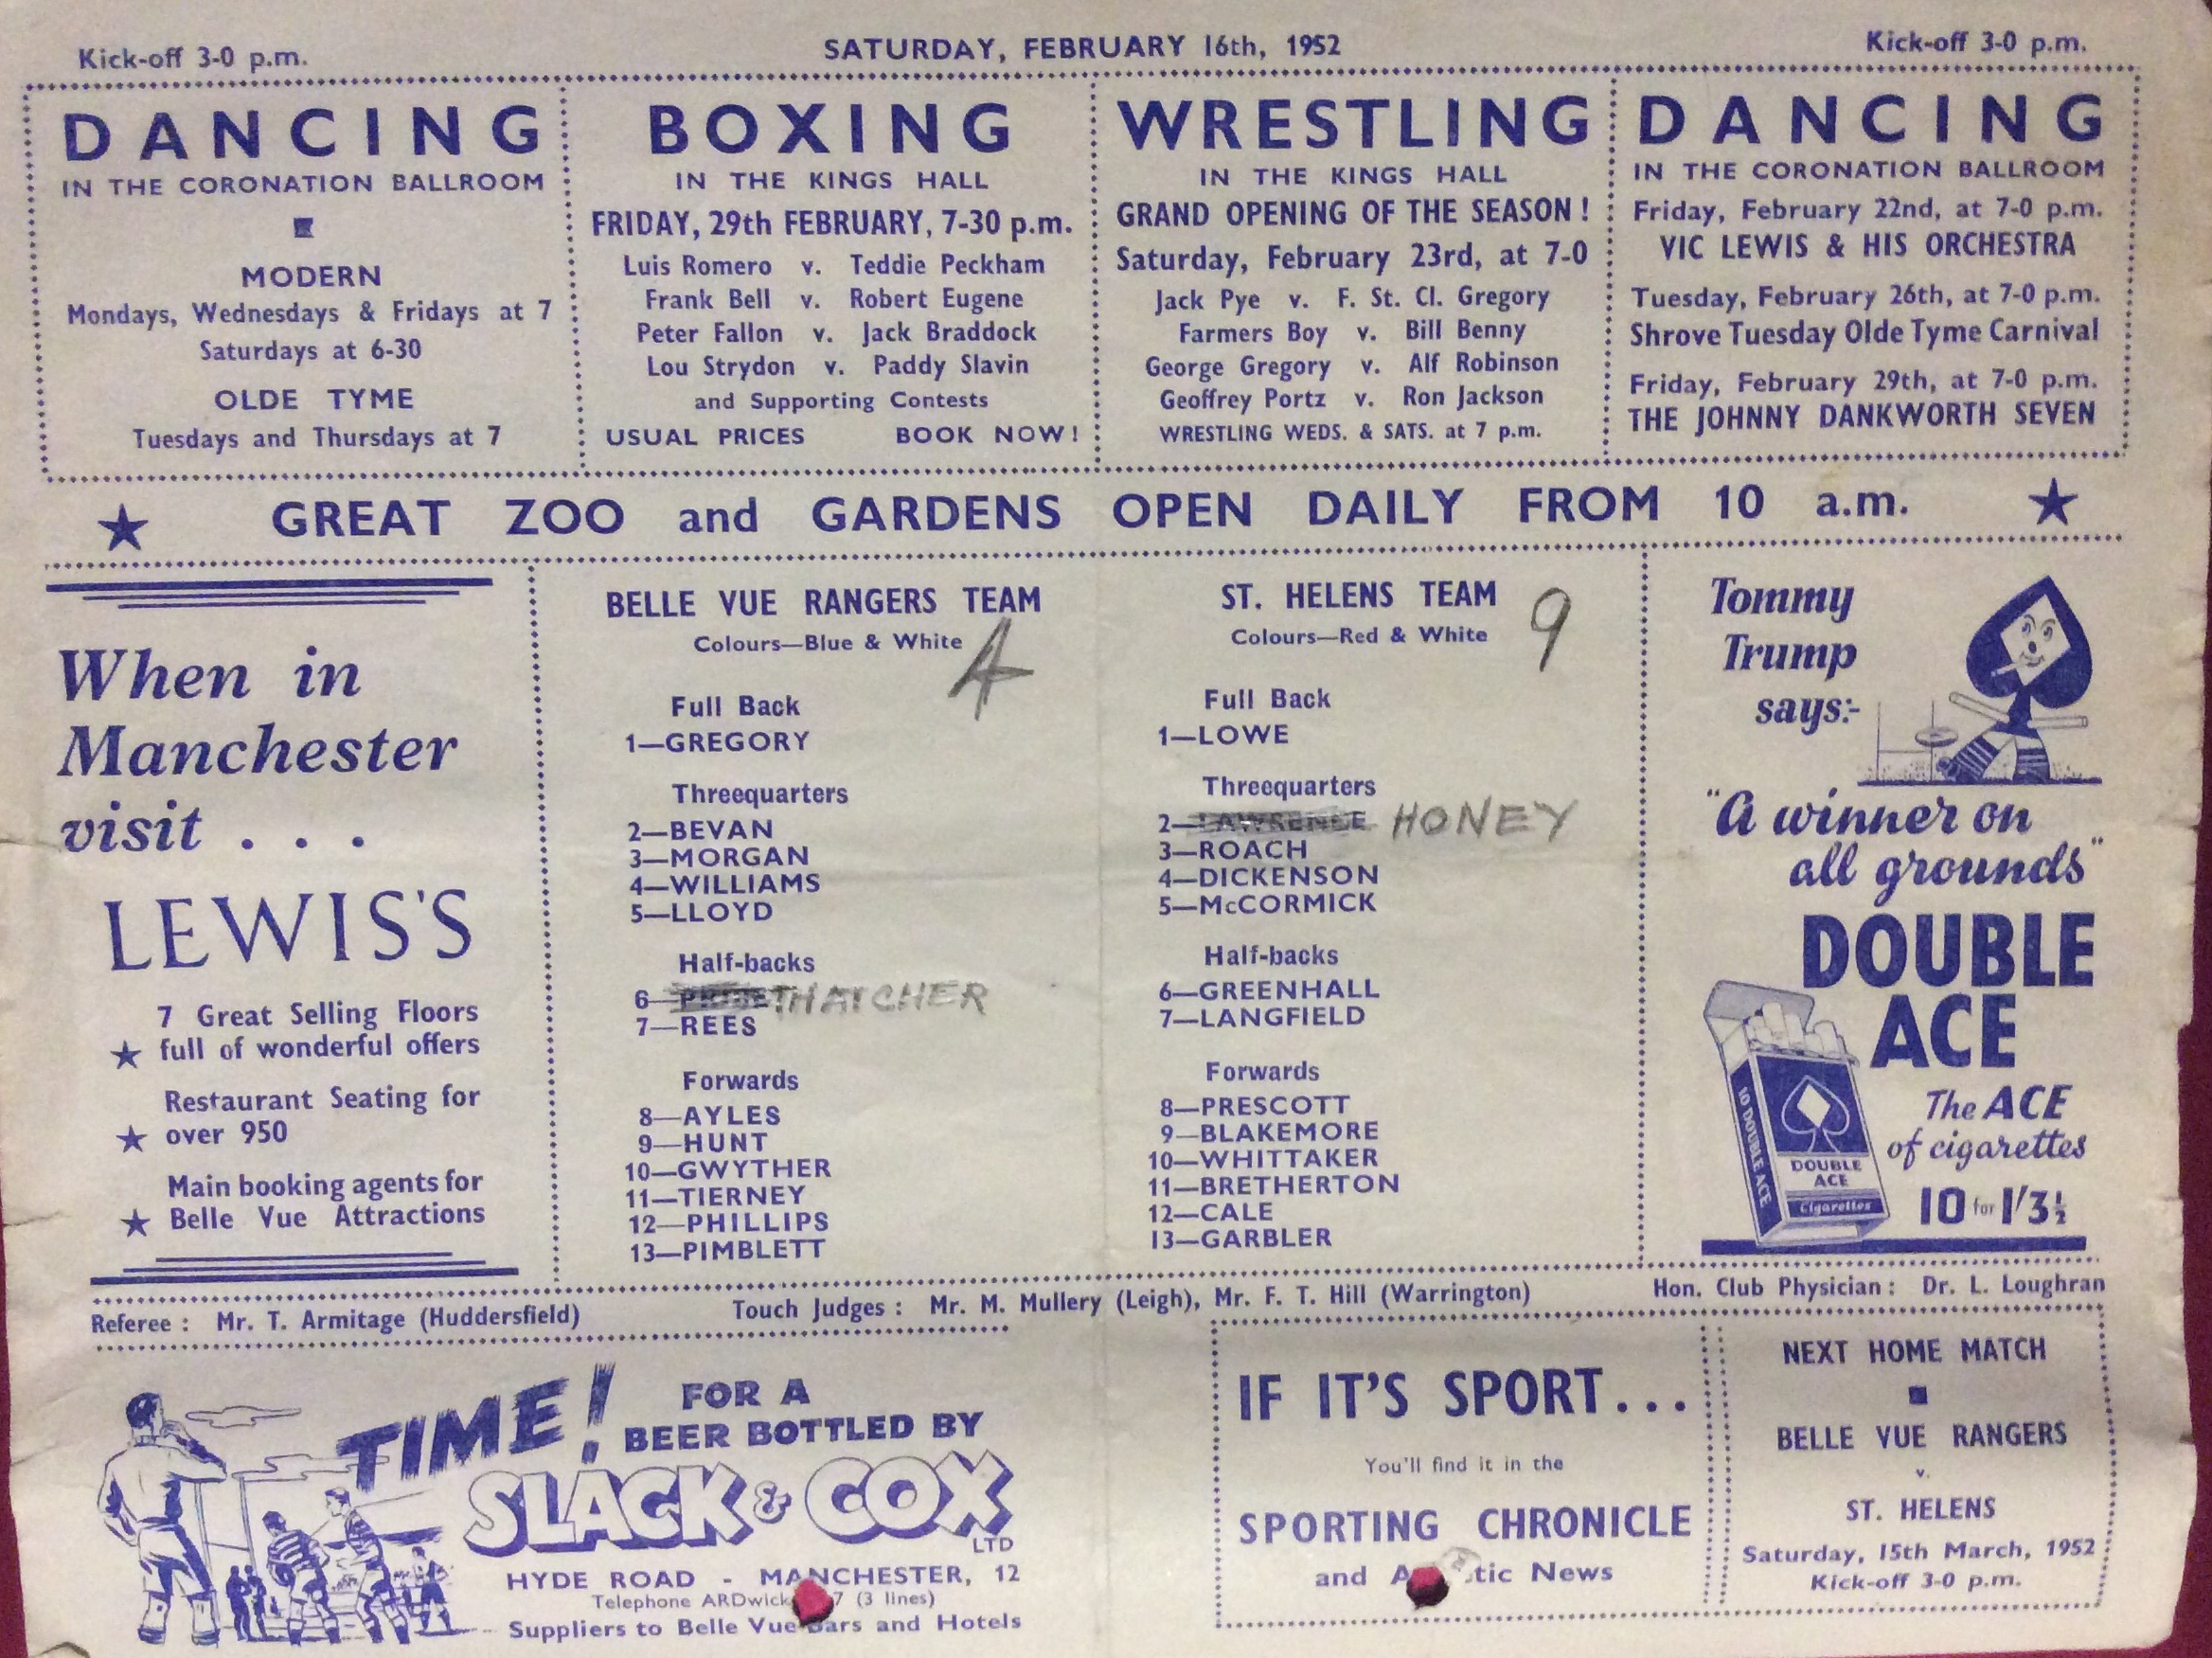 Kick-off 3-0 p.m.
SATURDAY, FEBRUARY 16th, 1952
Kick-off 3-0 p.m.
DANCING
IN THE CORONATION BALLROOM
MODERN
Mondays, Wednesdays & Fridays at 7
Saturdays at 6-30
OLDE TYME
Tuesdays and Thursdays at 7
BOXING
IN THE KINGS HALL
FRIDAY, 29th FEBRUARY, 7-30 p.m.
Luis Romero v. Teddie Peckham
Frank Bell v. Robert Eugene
Peter Fallon v. Jack Braddock
Lou Strydon v. Paddy Slavin
and Supporting Contests
USUAL PRICES BOOK NOW!
WRESTLING
IN THE KINGS HALL
GRAND OPENING OF THE SEASON!
Saturday, February 23rd, at 7-0
Jack Pye v. F. St. Cl. Gregory
Farmers Boy v. Bill Benny
George Gregory v. Alf Robinson
Geoffrey Portz v. Ron Jackson
WRESTLING WEDS. & SATS. at 7 p.m.
DANCING
IN THE CORONATION BALLROOM
Friday, February 22nd, at 7-0 p.m.
VIC LEWIS & HIS ORCHESTRA
Tuesday, February 26th, at 7-0 p.m.
Shrove Tuesday Olde Tyme Carnival
Friday, February 29th, at 7-0 p.m.
THE JOHNNY DANKWORTH SEVEN
GREAT ZOO and GARDENS OPEN DAILY FROM 10 a.m.
When in
Manchester
visit . . .
LEWIS'S
7 Great Selling Floors
full of wonderful offers
Restaurant Seating for
over 950
Main booking agents for
Belle Vue Attractions
BELLE VUE RANGERS TEAM
Colours—Blue & White
4
Full Back
1—GREGORY
Threequarters
2—BEVAN
3—MORGAN
4—WILLIAMS
5—LLOYD
Half-backs
6— THATCHER
7—REES
Forwards
8—AYLES
9—HUNT
10—GWYTHER
11—TIERNEY
12—PHILLIPS
13—PIMBLETT
ST. HELENS TEAM
Colours—Red & White
9
Full Back
1—LOWE
Threequarters
2—LAWRENCE HONEY
3—ROACH
4—DICKENSON
5—McCORMICK
Half-backs
6—GREENHALL
7—LANGFIELD
Forwards
8—PRESCOTT
9—BLAKEMORE
10—WHITTAKER
11—BRETHERTON
12—CALE
13—GARBLER
Tommy
Trump
says:-
"A winner on
all grounds"
DOUBLE
ACE
The ACE
of cigarettes
10 for 1/3½
10 DOUBLE ACE
DOUBLE
ACE
Cigarettes
Referee : Mr. T. Armitage (Huddersfield)
Touch Judges : Mr. M. Mullery (Leigh), Mr. F. T. Hill (Warrington)
Hon. Club Physician : Dr. L. Loughran
TIME! FOR A
BEER BOTTLED BY
SLACK & COX
LTD
HYDE ROAD - MANCHESTER, 12
Telephone ARDwick 7 (3 lines)
Suppliers to Belle Vue Bars and Hotels
IF IT'S SPORT...
You'll find it in the
SPORTING CHRONICLE
and News
NEXT HOME MATCH
BELLE VUE RANGERS
v.
ST. HELENS
Saturday, 15th March, 1952
Kick-off 3-0 p.m.